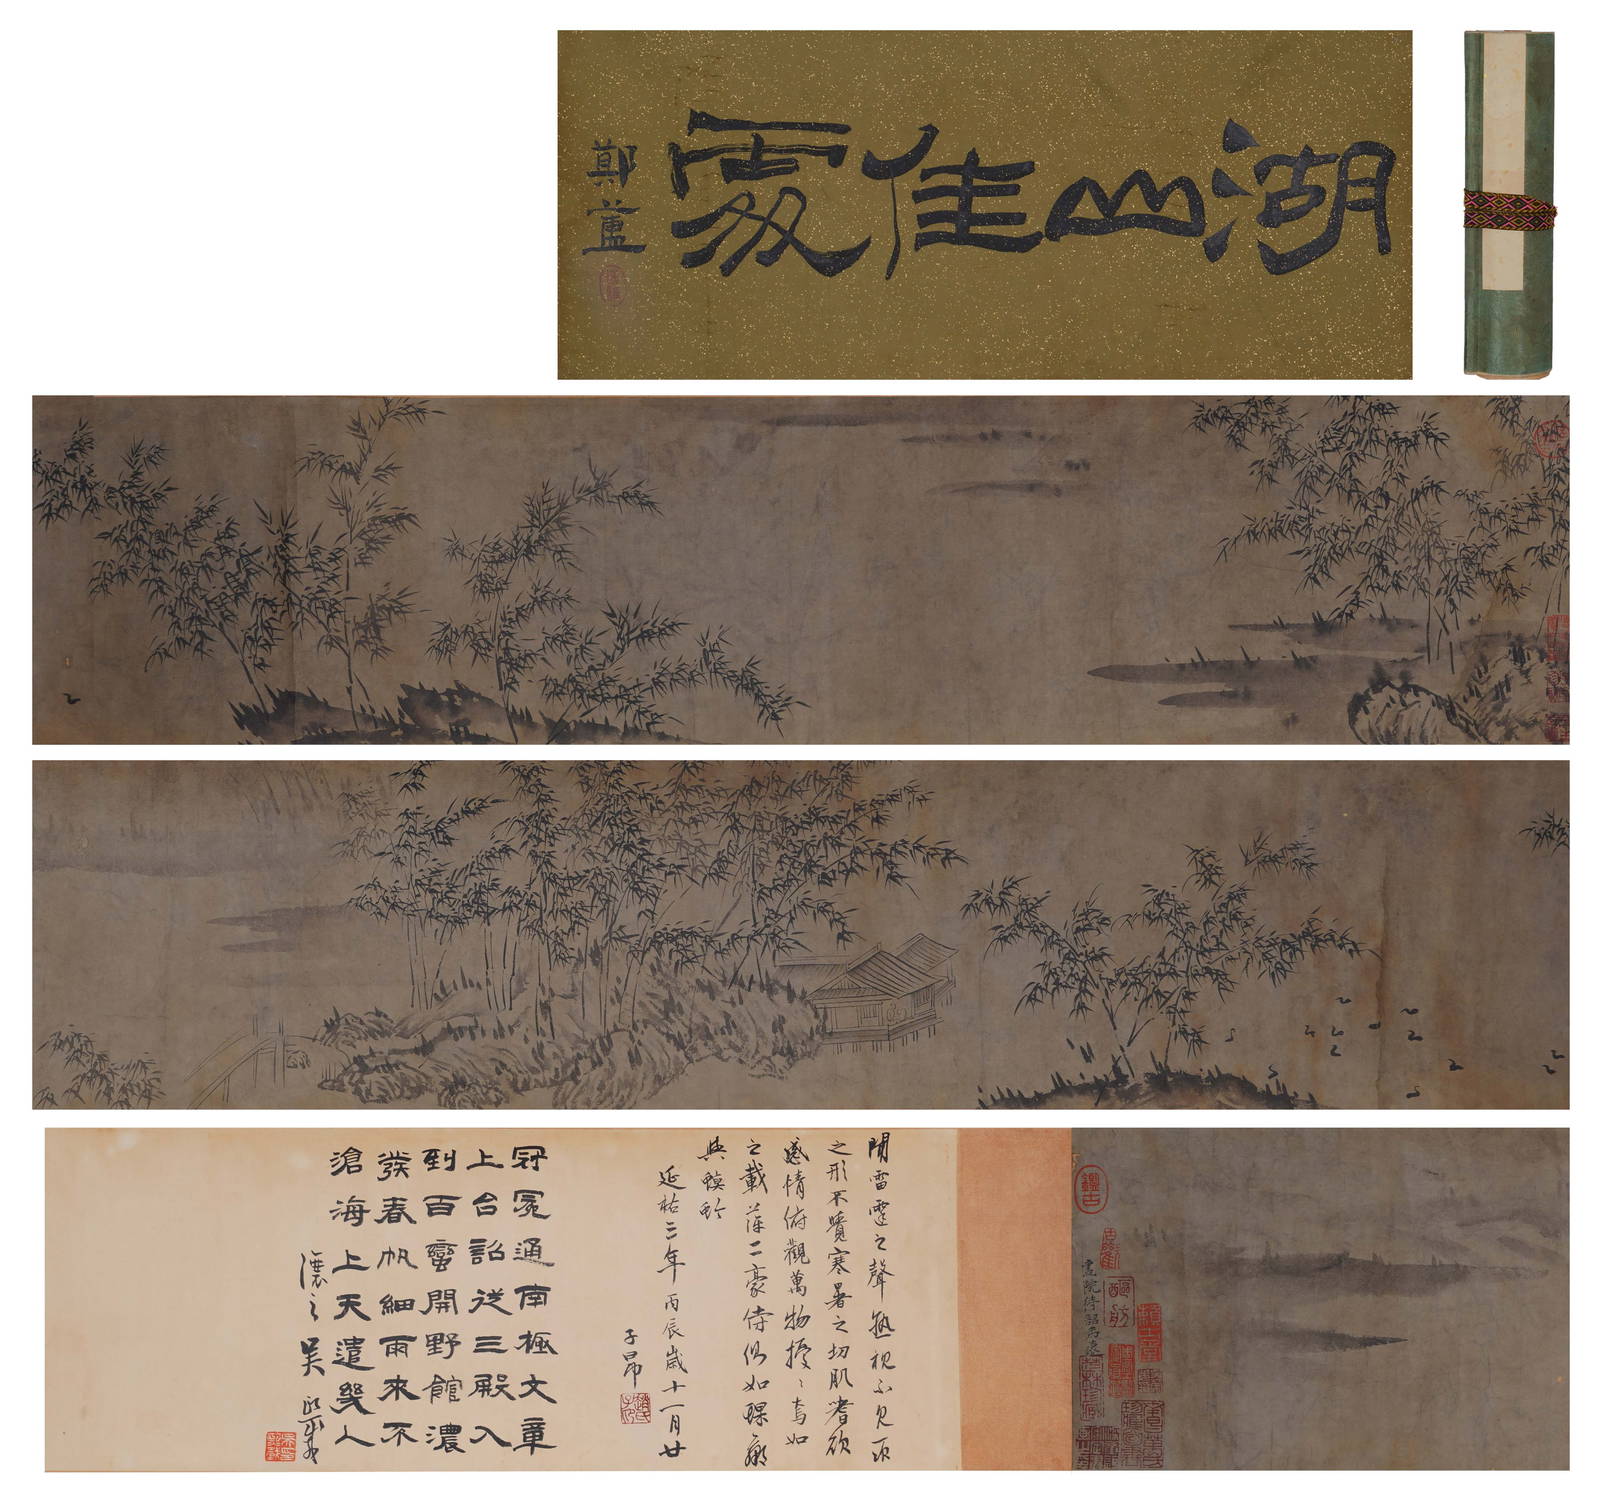 湖山佳處
鄭簠
畫院待詔馬遠
鑑古
聞雷霆之聲熟視不見泰山
之形不覺寒暑之切肌嗜欲
感情俯觀萬物擾擾焉如
之載萍二豪侍側如蜾蠃
與螟蛉
延祐三年丙辰歲十一月廿
子昂
冠冕通南極文章
上台詔從三殿入
到百蠻開野館濃
發春帆細雨來不
滄海上天遣幾人
讓之吳熙載